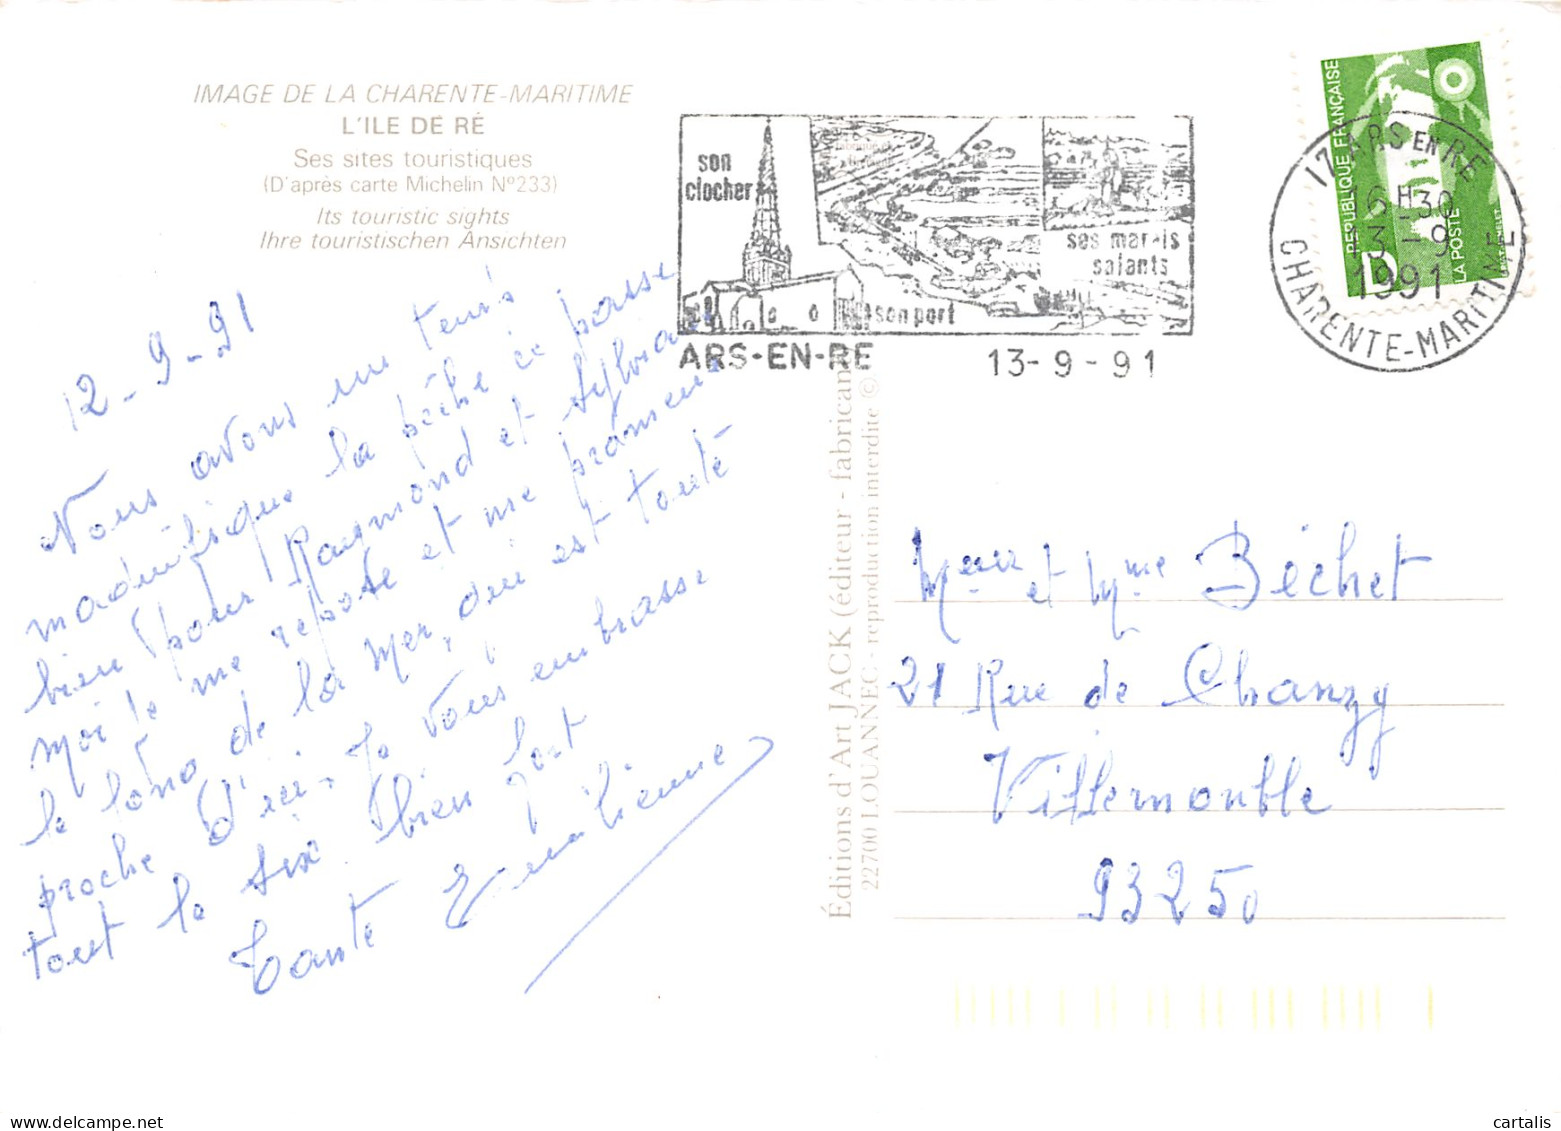 IMAGE DE LA CHARENTE-MARITIME
L'ILE DE RÉ
Ses sites touristiques
(D'après carte Michelin N°233)
Its touristic sights
Ihre touristischen Ansichten
son
clocher
ses marais
salants
son port
ARS-EN-RE 13-9-91
RÉPUBLIQUE FRANÇAISE
LA POSTE
17 ARS EN RE
16H30
13-9
1991
CHARENTE-MARITIME
12-9-91
Nous avons un temps
madnifique la pêche ce passe
bien pour Raymond et Sylviane
moi je me repose et me promene
le long de la mer, qui est toute
proche d'ici, Je vous embrasse
tout le six bien fort
Tante Emilienne
Éditions d'Art JACK (éditeur - fabricant)
22700 LOUANNEC - reproduction interdite ©
Meur et Mme Béchet
21 Rue de Chanzy
Villemomble
93250
cartalis